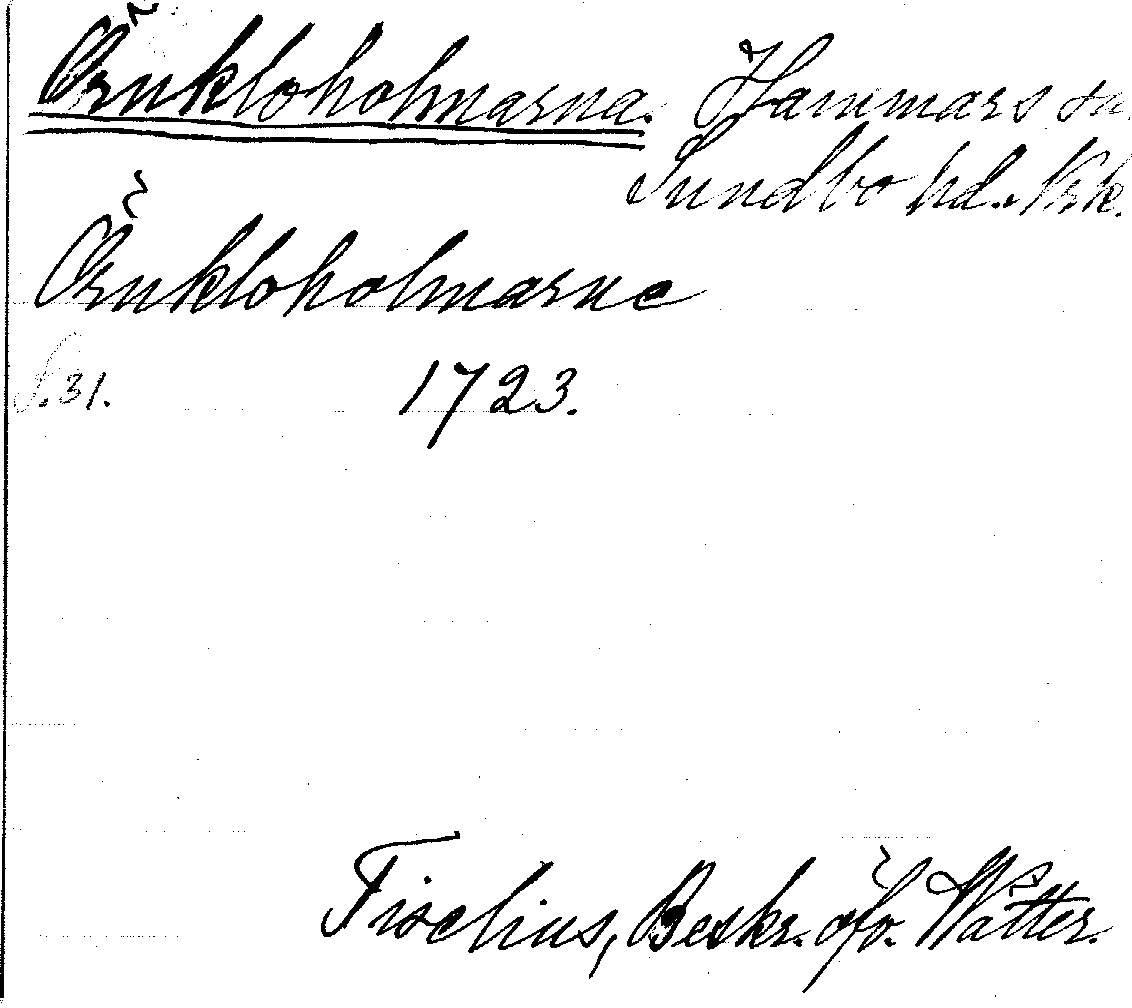 Örnkloholmarna. Hammars sn.
Sundbo hd. Nrk.
Örnkloholmarne
S. 31. 1723.
Tiselius, Beskr. öfv. Wätter.